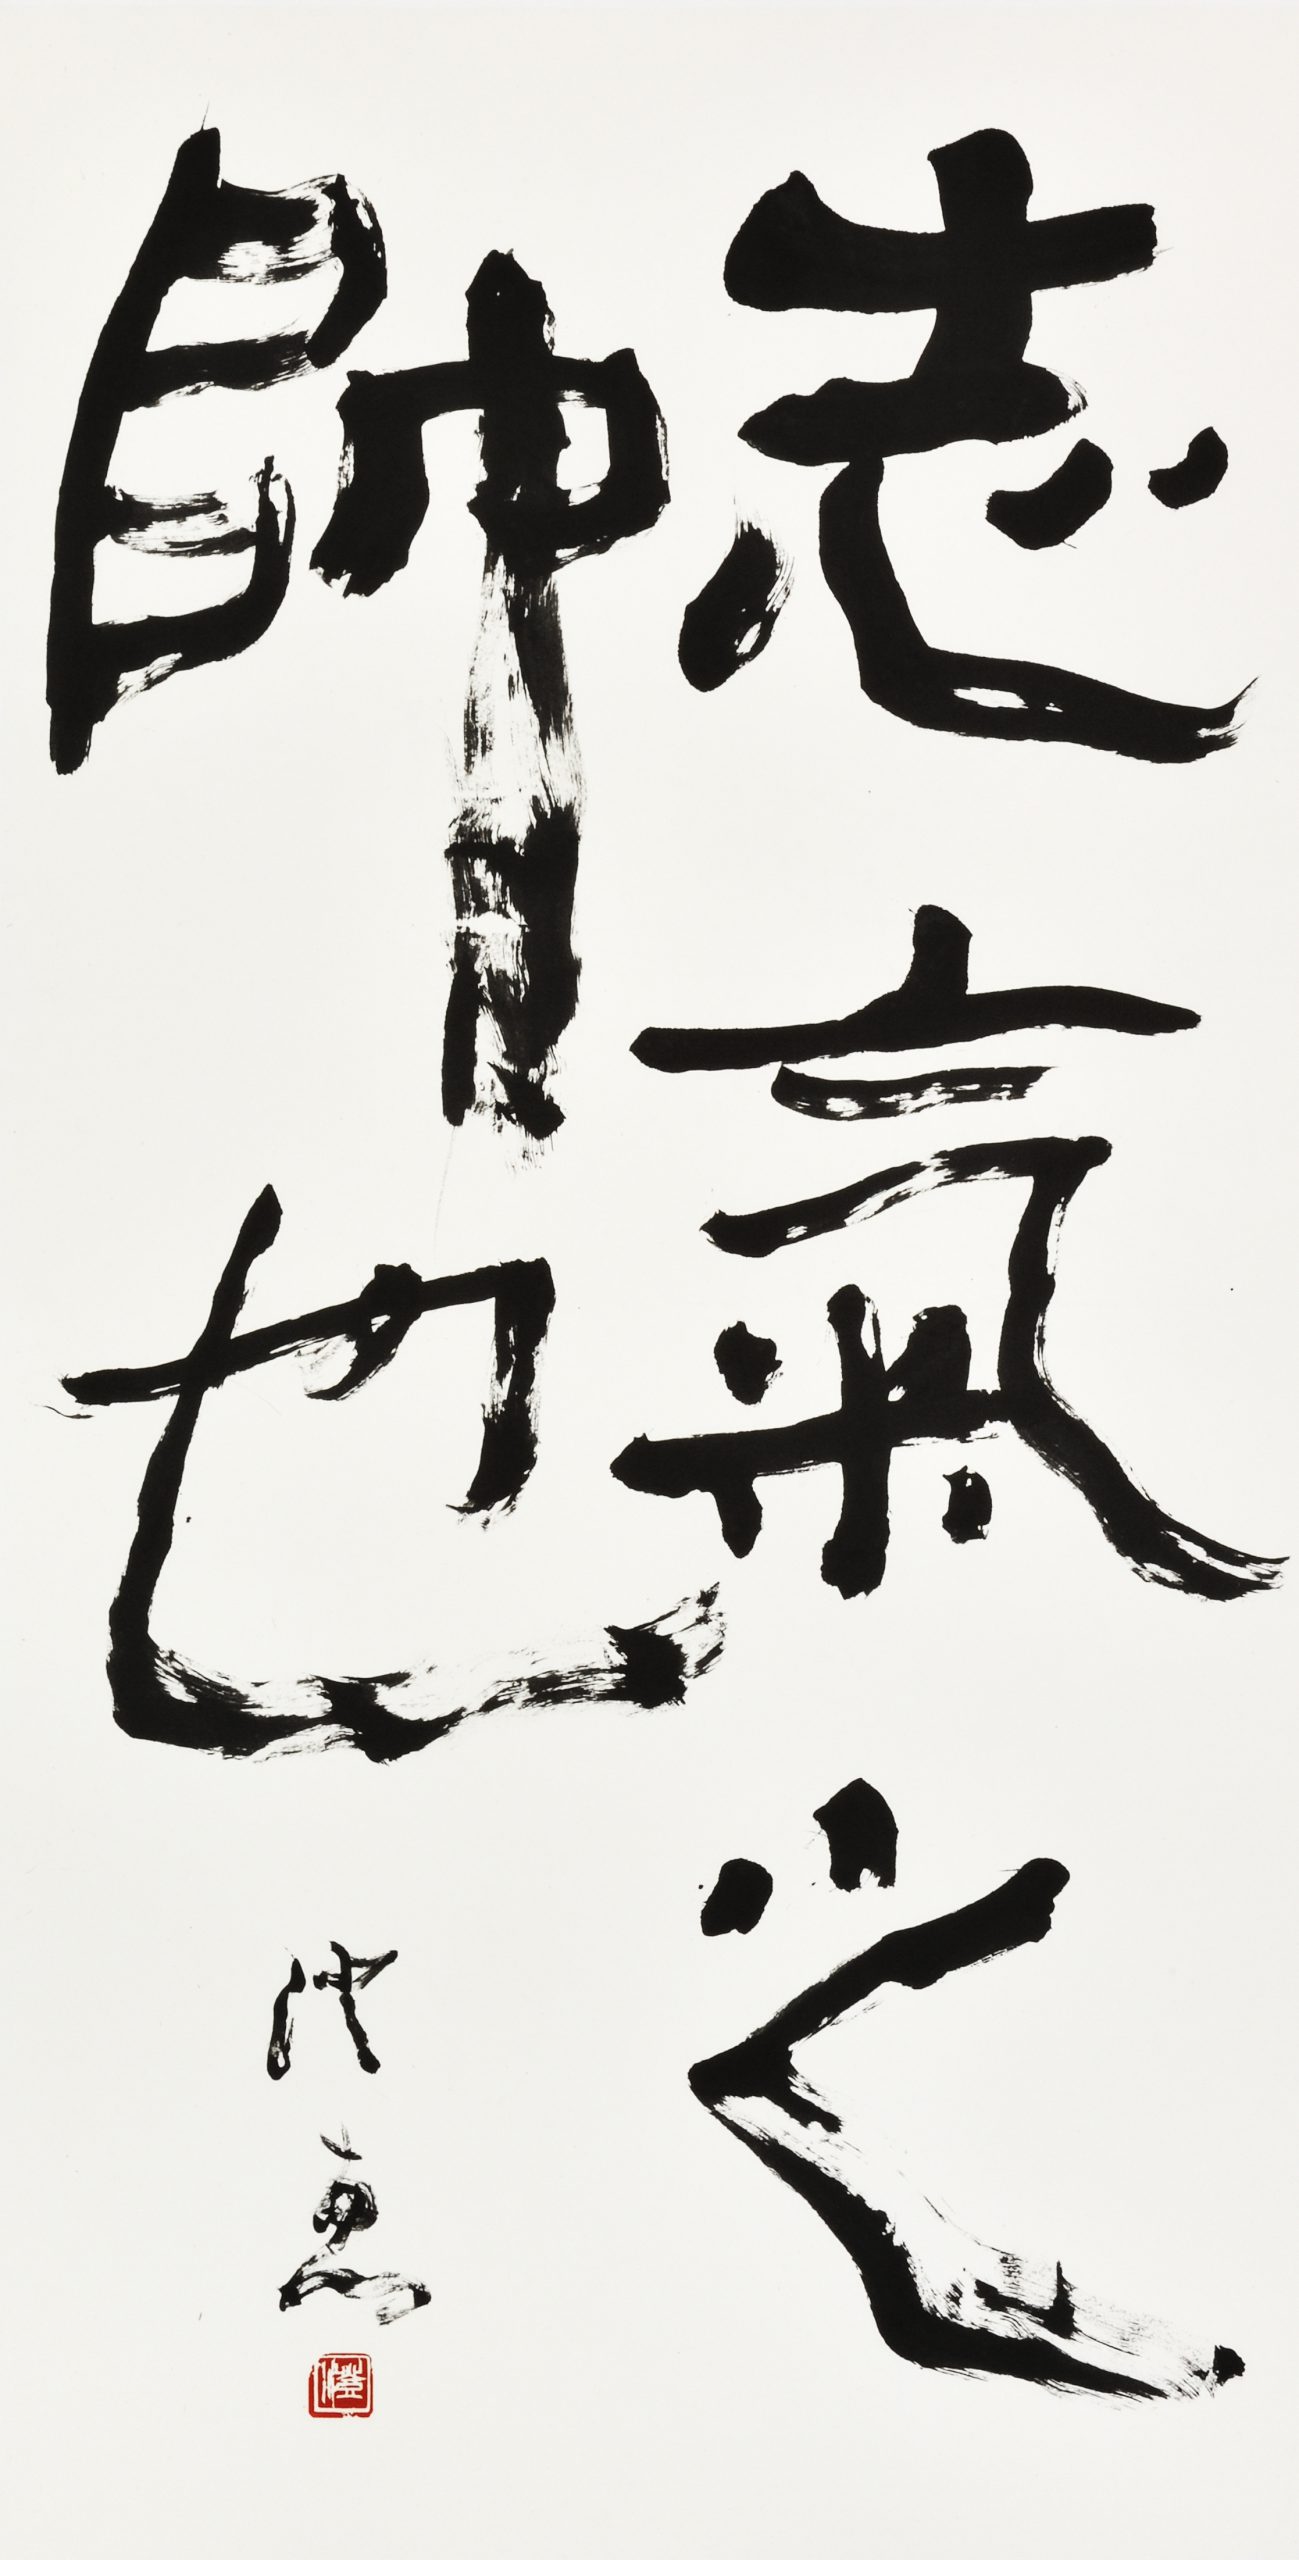 志氣之
帥也